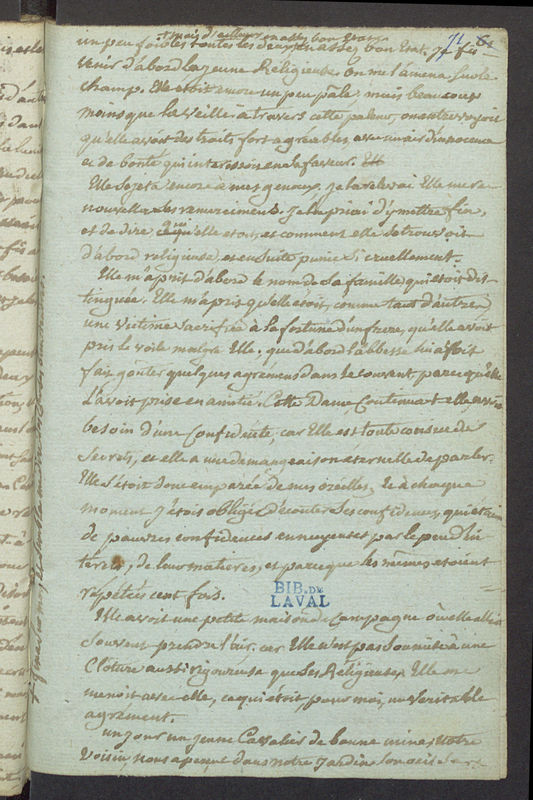 71
mais d'ailleurs en assez bon Etat.
un peu toutes les deux en assez bon Etat. Je fis
venir d'abord la jeune Religieuse on me l'amena sur le
champ. Elle étoit encore un peu pâle, mais beaucoup
moins que la veille à travers cette paleur, on entrevoyoit
qu'elle avoit des traits fort agréables, avec un air d'innocence
et de bonté qui interessoit en sa faveur.
Elle se jeta encore à mes genoux, je la relevai Elle me re-
nouvella ses remerciments. Je la priai d'y mettre fin,
et de dire ce qu'elle etoit, et comment elle se trouvoit
d'abord religieuse, et ensuite punie si cruellement.
Elle m'aprit d'abord le nom de sa famille qui étoit dis-
tinguée. Elle m'aprit qu'elle etoit, comme tant d'autres
une victime sacrifiée à la fortune d'un frere, qu'elle avoit
pris le voile malgré Elle. que d'abord l'abbesse lui
fait gouter quelques agrémens dans le couvent, parce qu'elle
l'avoit prise en amitié. Cette Dame, Continua t elle, avoit
besoin d'une Confidente, car Elle est toute cousue de
Secrets, et elle a une demangeaison eternelle de parler.
Elle s'étoit donc emparée de mes oreilles, et à chaque
moment j'étois obligée d'écouter ses confidences, qui étoient
de pauvres confidences ennuyeuses par le peu d'in
terêt, de leurs matieres, et parce que les mêmes etoient
répétées cent fois.
BIB. DE
LAVAL
Elle avoit une petite maison de Campagne où elle alloit
Souvent prendre l'air, car Elle n'est pas Soumise à une
Cloture aussi rigoureuse que les Religieuses Elle me
menoit avec elle, ce qui étoit, pour moi, un veritable
agrément.
un jour un jeune Cavalier de bonne mine, notre
Voisin, nous aperçut dans notre Jardin